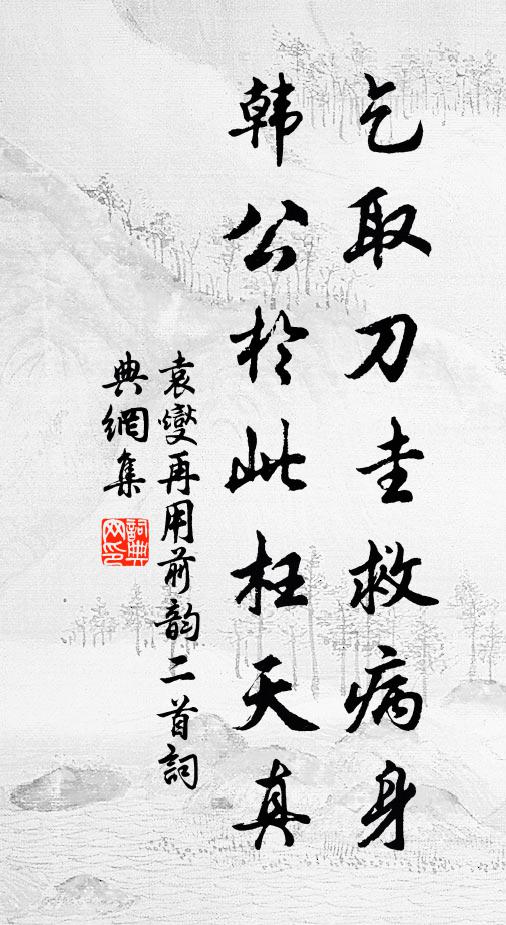 乞取刀圭救病身
韩公於此枉天真
袁燮再用前韵二首詞
典網集
詞典网印